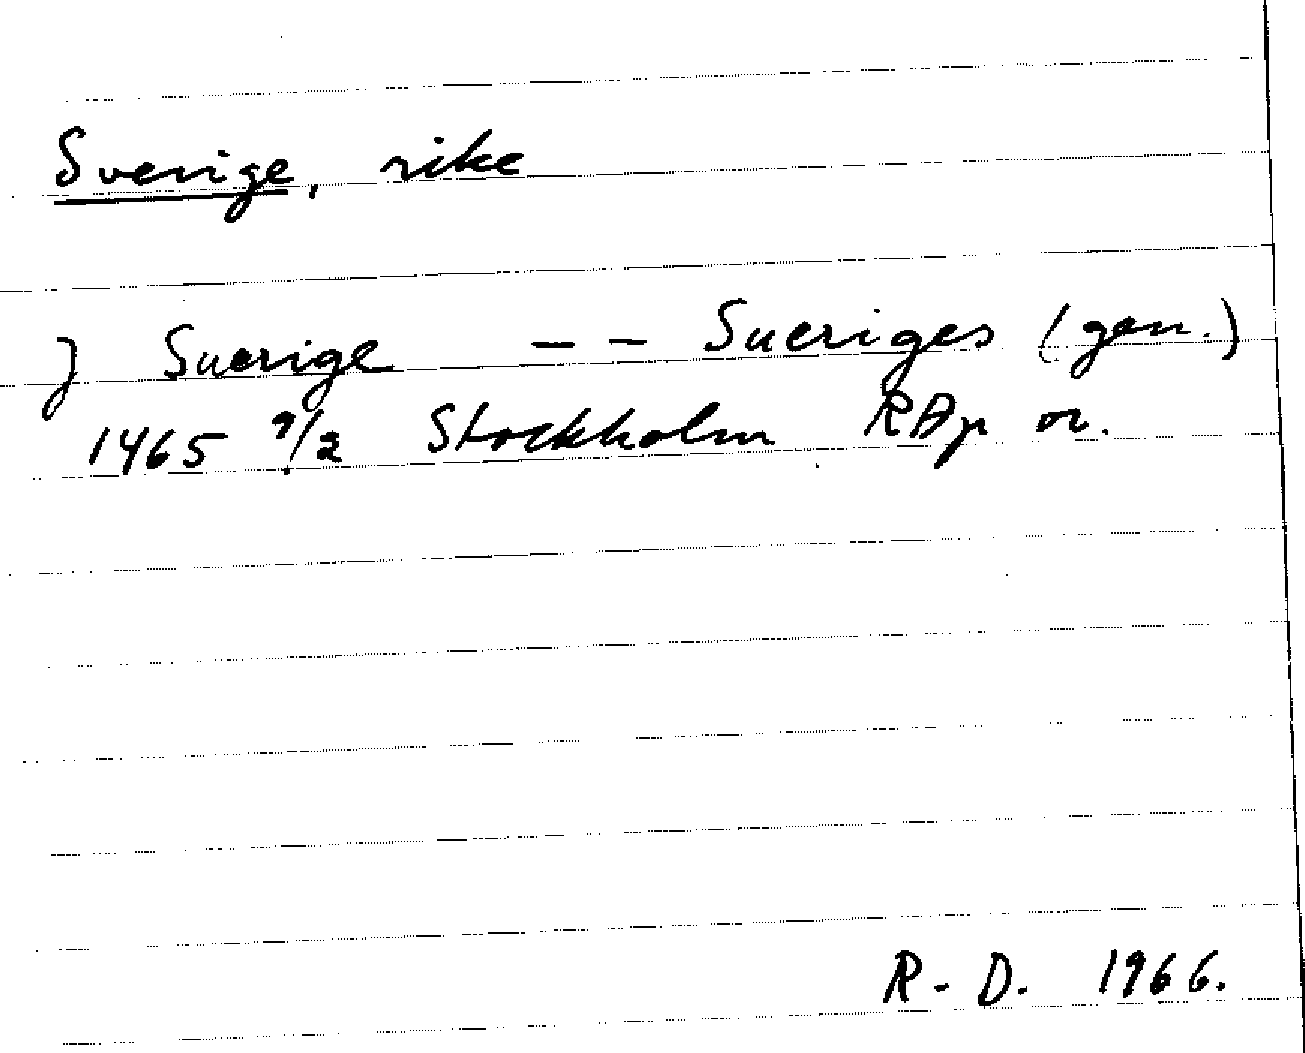 Sverige, rike
J Suerige -- Sueriges (gen.)
1465 9/2 Stockholm RAp or.
R-D. 1966.